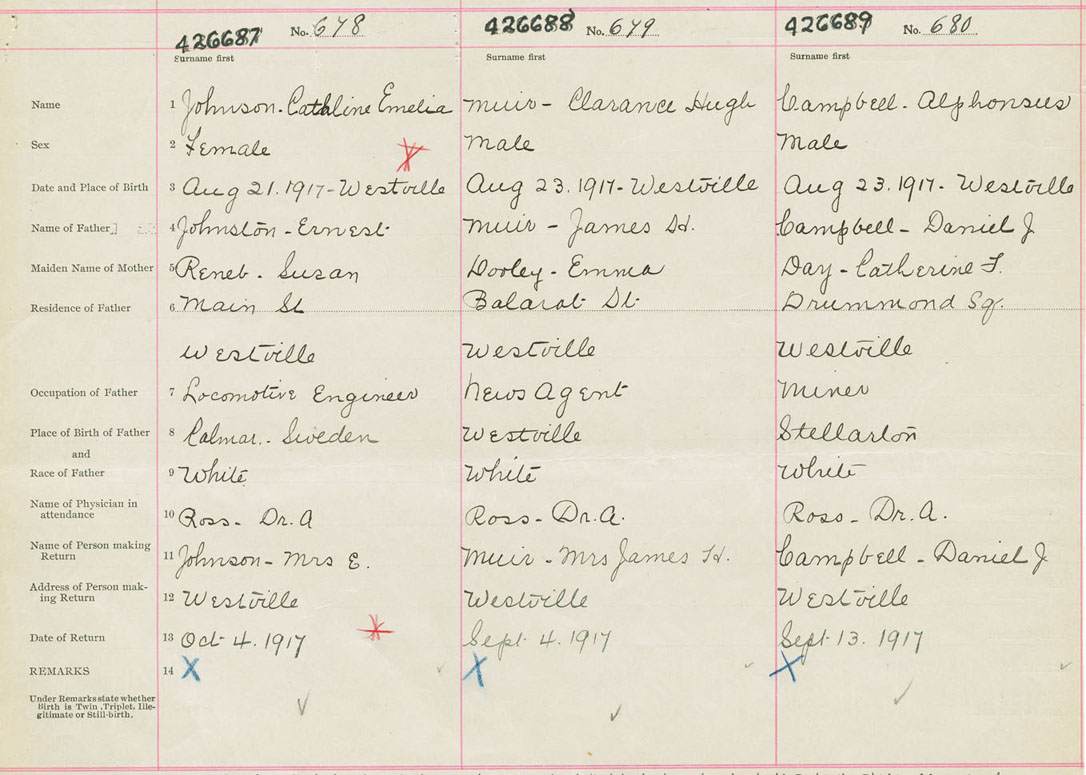 426687 No. 678 426688 No. 679 426689 No. 680
Surname first Surname first Surname first
Name 1 Johnson - Cathline Emelia Muir - Clarance Hugh Campbell - Alphonsus
Sex 2 Female Male Male
Date and Place of Birth 3 Aug 21. 1917 - Westville Aug 23. 1917 - Westville Aug 23. 1917 - Westville
Name of Father 4 Johnston - Ernest Muir - James H. Campbell - Daniel J
Maiden Name of Mother 5 Reneb - Susan Dooley - Emma Day - Catherine F.
Residence of Father 6 Main St Balarat St Drummond Sq.
Westville Westville Westville
Occupation of Father 7 Locomotive Engineer News Agent Miner
Place of Birth of Father 8 Calmar - Sweden Westville Stellarton
and
Race of Father 9 White White White
Name of Physician in
attendance 10 Ross - Dr. A Ross - Dr. A. Ross - Dr. A.
Name of Person making
Return 11 Johnson - Mrs E. Muir - Mrs James H. Campbell - Daniel J
Address of Person mak-
ing Return 12 Westville Westville Westville
Date of Return 13 Oct 4. 1917 Sept 4. 1917 Sept 13. 1917
REMARKS 14 X X X
Under Remarks state whether
Birth is Twin, Triplet, Ille-
gitimate or Still-birth.